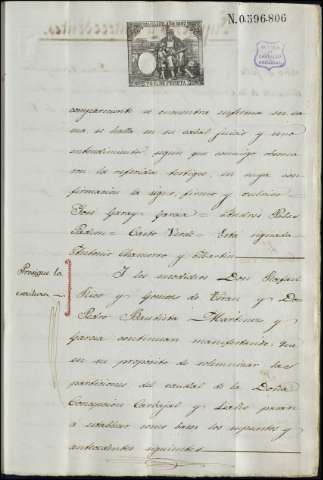 N. 0.396.806
compareciente se encuentra enferma en ca-
ma se halla en su cabal juicio y
entendimiento segun que conmigo
con la referidos testigos, en cuya con-
firmacion la signo, firmo y
Jose Garay Garcia = Andres
Padron = Casto Verde = Esta signado =
Antonio Chamorro y Martin
Prosigue la
escritura
Y los medidos Don Rafael
Rico y Gomez de Teran y Dn
Pedro Bautista Martinez y
Garcia continuan manifestando: Que
en su proposito de solemnizar las
particiones del caudal de la Doña
Concepcion Carbajal y pasan
a establecer como bases los supuestos y
antecedentes siguientes